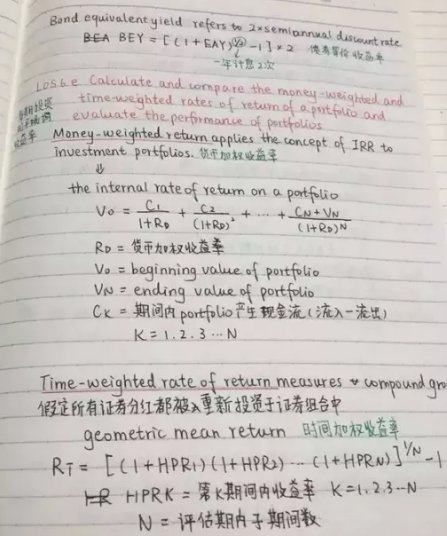 Bond equivalent yield refers to 2×semiannual discount rate
BEA BEY = [(1+EAY)^½ -1] × 2 债券等价收益率
一年计息2次
LOS6.e Calculate and compare the money-weighted and
time-weighted rates of return of a portfolio and
evaluate the performance of portfolios
收益率
Money-weighted return applies the concept of IRR to
investment portfolios. 货币加权收益率
⇓
the internal rate of return on a portfolio
V0 = C1/(1+RD) + C2/(1+RD)² + ... + (CN+VN)/(1+RD)^N
RD = 货币加权收益率
V0 = beginning value of portfolio
VN = ending value of portfolio
CK = 期间内portfolio产生现金流(流入-流出)
K = 1.2.3...N
Time-weighted rate of return measures compound gro
假定所有证券分红都被重新投资于证券组合中
geometric mean return 时间加权收益率
RT = [(1+HPR1)(1+HPR2)...(1+HPRN)]^1/N -1
HR HPRK = 第K期间内收益率 K=1.2.3...N
N = 评估期内子期间数